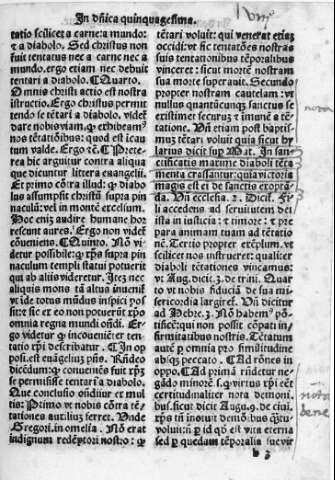 In dñica quinquagesima.
tatio scilicet a carne: a mundo:
⁊ a diabolo. Sed christus non
fuit tentatus nec a carne nec a
mundo. ergo etiam nec debuit
tentari a diabolo. ¶ Quarto
Omnis christi actio est nostra
instructio. Ergo christus permit
tendo se tẽtari a diabolo. videt᷑
dare nobis viam. ꝙ exhibeam᷒
nos tẽtatiõibus: quod est icau
tum valde. Ergo ⁊c̃. ¶ Prete-
rea hic arguitur contra aliqua
que dicuntur littera euangelii.
Et primo cõtra illud: ꝙ diabo
lus assumpsit christũ supra pin
naculũ: vel in montẽ excelsum.
Hoc eniz audire humane hor
rescunt aures. Ergo non videt᷑
cõueniens. ¶ Quinto. Nõ vi
detur possibile: ꝙ xp̃s supra pin
naculum templi statui potuerit
qui ab aliis videretur. Itez nec
aliquis mons tã altus inuenit᷑
vt
omnia regna mundi oñdi. Er-
go videtur ꝙ incõueniẽter ten
tatio xp̃i describatur. ¶ In op
posi. est euãgeliuz pñs. Rñdeo
dicẽdum: ꝙ conueniẽs fuit xp̃z
se permisisse tentari a diabolo.
Que conclusio ondiitur et mul
tis: Primo vt nobis cõtra tẽ-
tationes auxiliuz ferret. Unde
Gregori. in omelia. Nõ erat
indignum redẽptori nostro: ꝙ
tẽtari voluit: qui venerat etiaz
occidi: vt sic tentatões nostras
suis tentationibus tẽporalibus
vinceret: sicut mortẽ nostram
sua morte superauit. Secundo
propter nostram cautelam: vt
nullus quantũcunqz sanctus se
existimet securuz ⁊ imunẽ a tẽ-
tatione. Uñ etiam post baptis-
muz tẽtari voluit quia sicut hy
larius dicit sup Mat. In san-
ctificatis maxime diaboli tẽta
menta crassantur: quia victoria
magis est ei de sanctis exopta-
da. Uñ ecclesia. 2. Dicit. Fi-
li accedens ad seruitutem dei
sta in iusticia: ⁊ timore: ⁊ pre
para animam tuam ad tẽtatio
nẽ. Tertio propter exẽplum. vt
scilicet nos instrueret: qualiter
diaboli tẽtationes vincamus:
vt Aug. dicit. 3. de trini. Quar
to vt nobis fiduciã de sua mi-
sericordia largiret᷑. Uñ dicitur
ad Hebre. 3. Nõ habem᷒ põ-
tificẽ: qui non possit cõpati in-
firmitatibus nostris. Tẽtatum
autẽ ꝑ omnia pro similitudine
absqz peccato. ¶ Ad rõnes in
oppo. ¶ Ad primã rñdetur ne-
gãdo minorẽ s. ꝙ virtus xp̃i eẽt
certitudinaliter nota demoni-
bus. sicut dicit Aug. 9. de ciui.
xp̃s tñ inotuit demõibus: qtũ
voluit: nõ ꝑ id qõ est vita eterna
sed ꝑ quedam tẽporalia sue vir
nota
nota
bene